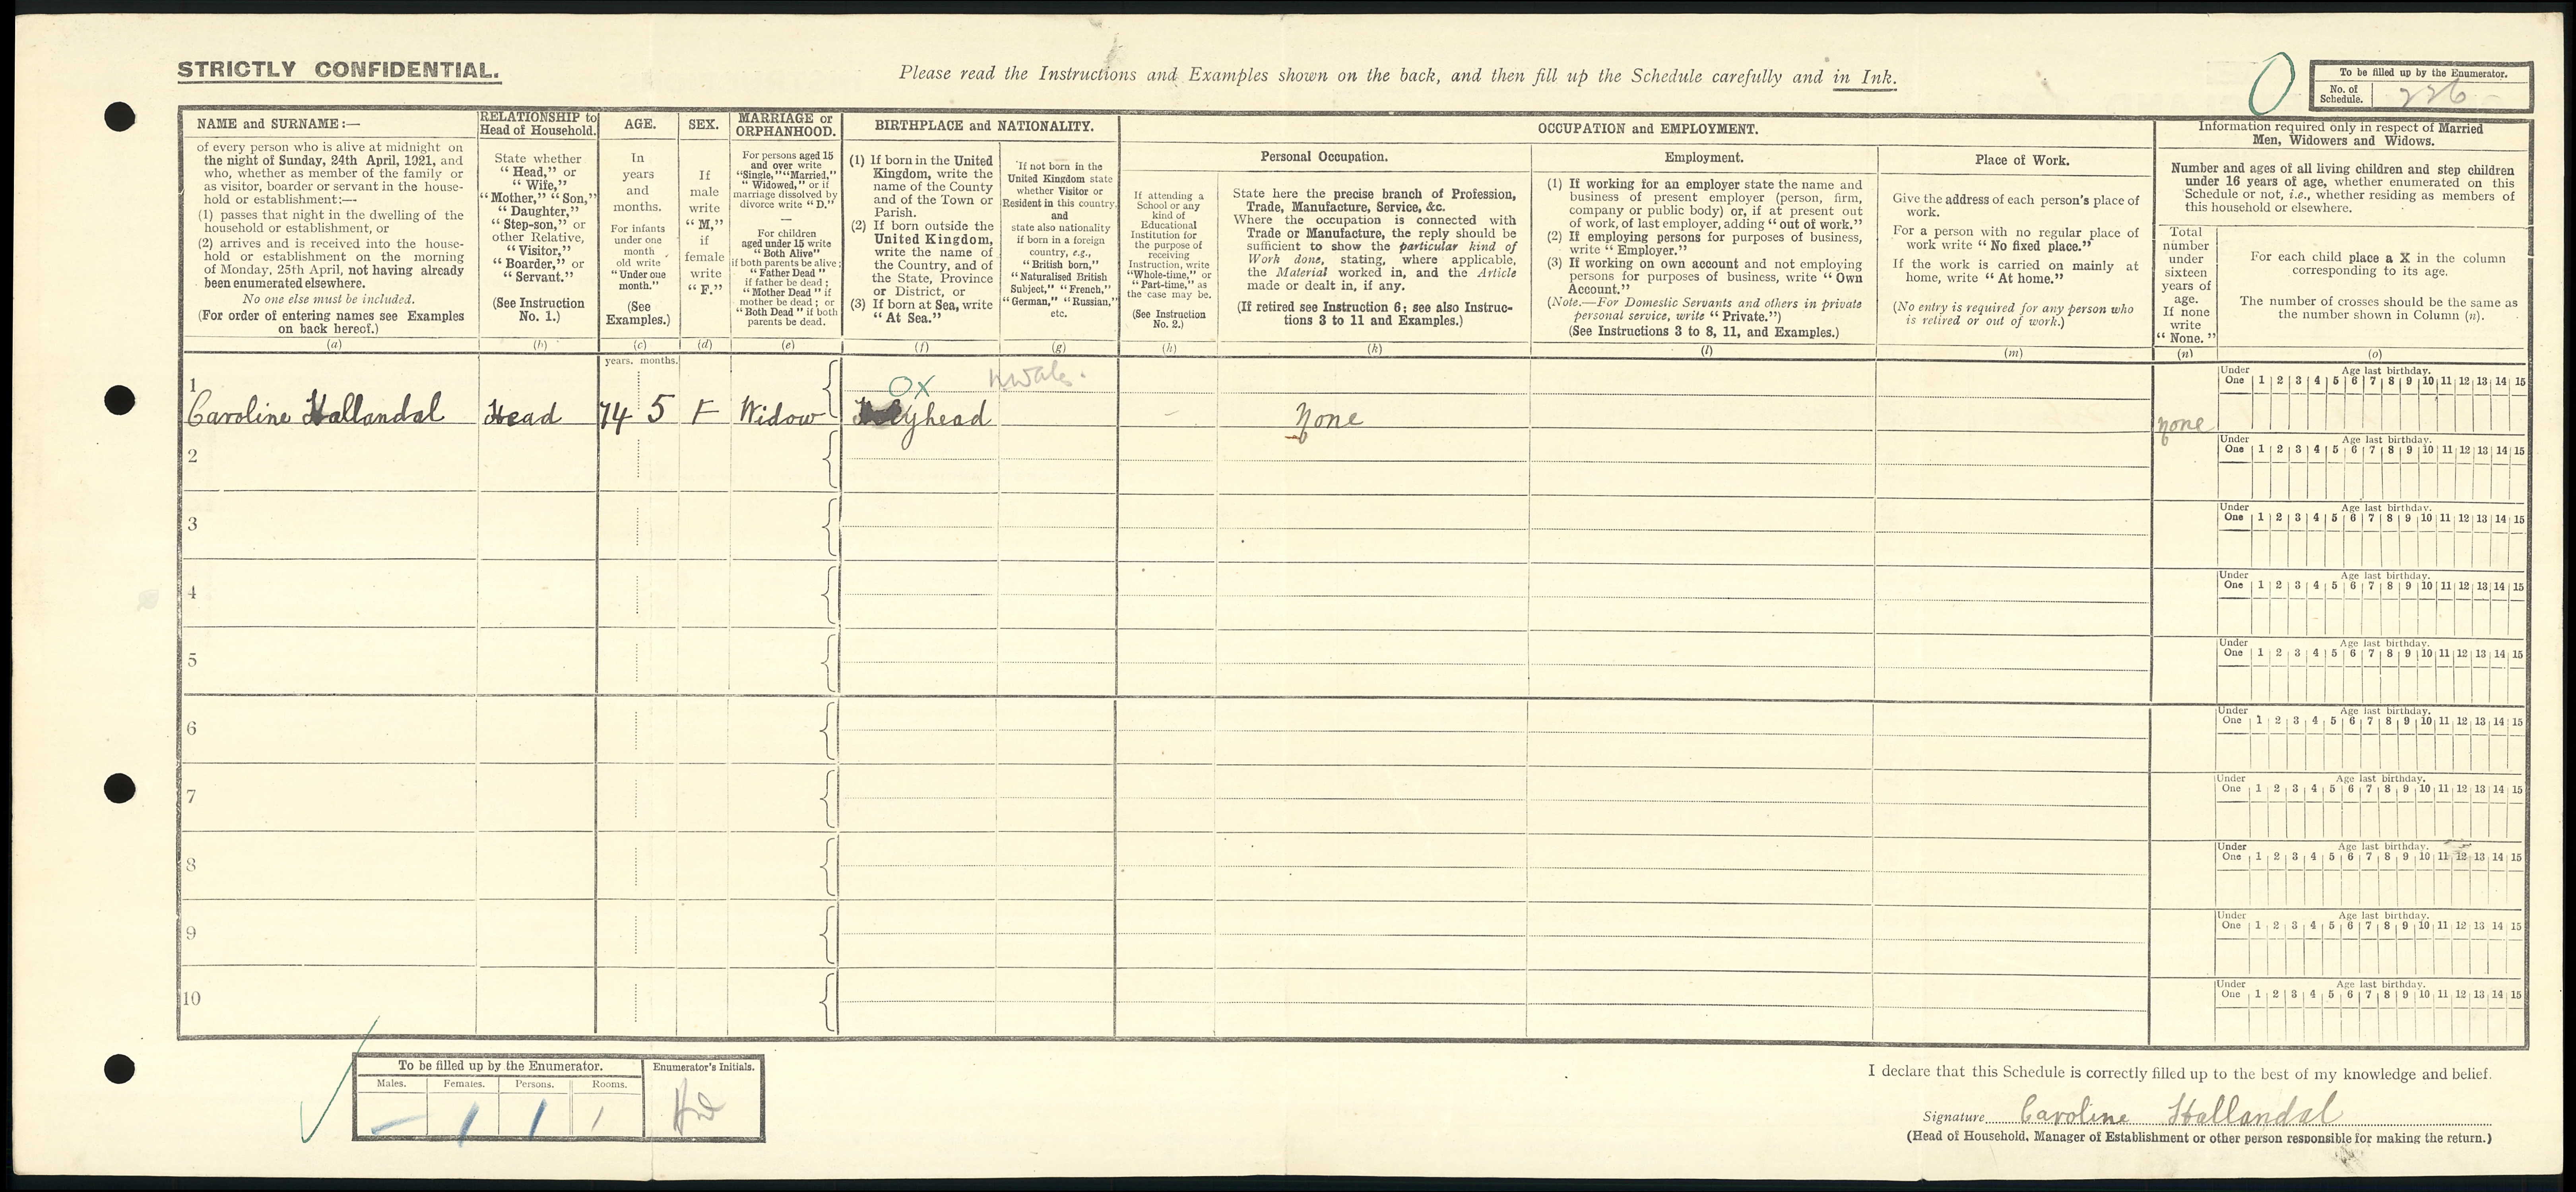 STRICTLY CONFIDENTIAL.
Please read the Instructions and Examples shown on the back, and then fill up the Schedule carefully and in Ink.
0
To be filled up by the Enumerator.
No. of
Schedule.
226
NAME and SURNAME:—
of every person who is alive at midnight on
the night of Sunday, 24th April, 1921, and
who, whether as member of the family or
as visitor, boarder or servant in the house-
hold or establishment:—
(1) passes that night in the dwelling of the
household or establishment, or
(2) arrives and is received into the house-
hold or establishment on the morning
of Monday, 25th April, not having already
been enumerated elsewhere.
No one else must be included.
(For order of entering names see Examples
on back hereof.)
(a)
RELATIONSHIP to
Head of Household.
State whether
"Head," or
"Wife,"
"Mother," "Son,"
"Daughter,"
"Step-son," or
other Relative,
"Visitor,"
"Boarder," or
"Servant."
(See Instruction
No. 1.)
(b)
AGE.
In
years
and
months.
For infants
under one
month
old write
"Under one
month."
(See
Examples.)
(c)
SEX.
If
male
write
"M,"
if
female
write
"F."
(d)
MARRIAGE or
ORPHANHOOD.
For persons aged 15
and over write
"Single," "Married,"
"Widowed," or if
marriage dissolved by
divorce write "D."
—
For children
aged under 15 write
"Both Alive"
if both parents be alive;
"Father Dead"
if father be dead;
"Mother Dead" if
mother be dead; or
"Both Dead" if both
parents be dead.
(e)
BIRTHPLACE and NATIONALITY.
(1) If born in the United
Kingdom, write the
name of the County
and of the Town or
Parish.
(2) If born outside the
United Kingdom,
write the name of
the Country, and of
the State, Province
or District, or
(3) If born at Sea, write
"At Sea."
(f)
If not born in the
United Kingdom state
whether Visitor or
Resident in this country.
and
state also nationality
if born in a foreign
country, e.g.,
"British born,"
"Naturalised British
Subject," "French,"
"German," "Russian,"
etc.
(g)
OCCUPATION and EMPLOYMENT.
Personal Occupation.
If attending a
School or any
kind of
Educational
Institution for
the purpose of
receiving
Instruction, write
"Whole-time," or
"Part-time," as
the case may be.
(See Instruction
No. 2.)
(h)
State here the precise branch of Profession,
Trade, Manufacture, Service, &c.
Where the occupation is connected with
Trade or Manufacture, the reply should be
sufficient to show the particular kind of
Work done, stating, where applicable,
the Material worked in, and the Article
made or dealt in, if any.
(If retired see Instruction 6; see also Instruc-
tions 3 to 11 and Examples.)
(k)
Employment.
(1) If working for an employer state the name and
business of present employer (person, firm,
company or public body) or, if at present out
of work, of last employer, adding "out of work."
(2) If employing persons for purposes of business,
write "Employer."
(3) If working on own account and not employing
persons for purposes of business, write "Own
Account."
(Note.—For Domestic Servants and others in private
personal service, write "Private.")
(See Instructions 3 to 8, 11, and Examples.)
(l)
Place of Work.
Give the address of each person's place of
work.
For a person with no regular place of
work write "No fixed place."
If the work is carried on mainly at
home, write "At home."
(No entry is required for any person who
is retired or out of work.)
(m)
Information required only in respect of Married
Men, Widowers and Widows.
Number and ages of all living children and step children
under 16 years of age, whether enumerated on this
Schedule or not, i.e., whether residing as members of
this household or elsewhere.
Total
number
under
sixteen
years of
age.
If none
write
"None."
(n)
For each child place a X in the column
corresponding to its age.
The number of crosses should be the same as
the number shown in Column (n).
(o)
years. months.
1
OX
N Wales.
Under Age last birthday.
One 1 2 3 4 5 6 7 8 9 10 11 12 13 14 15
Caroline Hallandal Head 74 5 F Widow Holyhead – None none
2
Under Age last birthday.
One 1 2 3 4 5 6 7 8 9 10 11 12 13 14 15
3
Under Age last birthday.
One 1 2 3 4 5 6 7 8 9 10 11 12 13 14 15
4
Under Age last birthday.
One 1 2 3 4 5 6 7 8 9 10 11 12 13 14 15
5
Under Age last birthday.
One 1 2 3 4 5 6 7 8 9 10 11 12 13 14 15
6
Under Age last birthday.
One 1 2 3 4 5 6 7 8 9 10 11 12 13 14 15
7
Under Age last birthday.
One 1 2 3 4 5 6 7 8 9 10 11 12 13 14 15
8
Under Age last birthday.
One 1 2 3 4 5 6 7 8 9 10 11 12 13 14 15
9
Under Age last birthday.
One 1 2 3 4 5 6 7 8 9 10 11 12 13 14 15
10
Under Age last birthday.
One 1 2 3 4 5 6 7 8 9 10 11 12 13 14 15
To be filled up by the Enumerator.
Males. Females. Persons. Rooms.
– 1 1 1
Enumerator's Initials.
I declare that this Schedule is correctly filled up to the best of my knowledge and belief.
Signature Caroline Hallandal
(Head of Household, Manager of Establishment or other person responsible for making the return.)